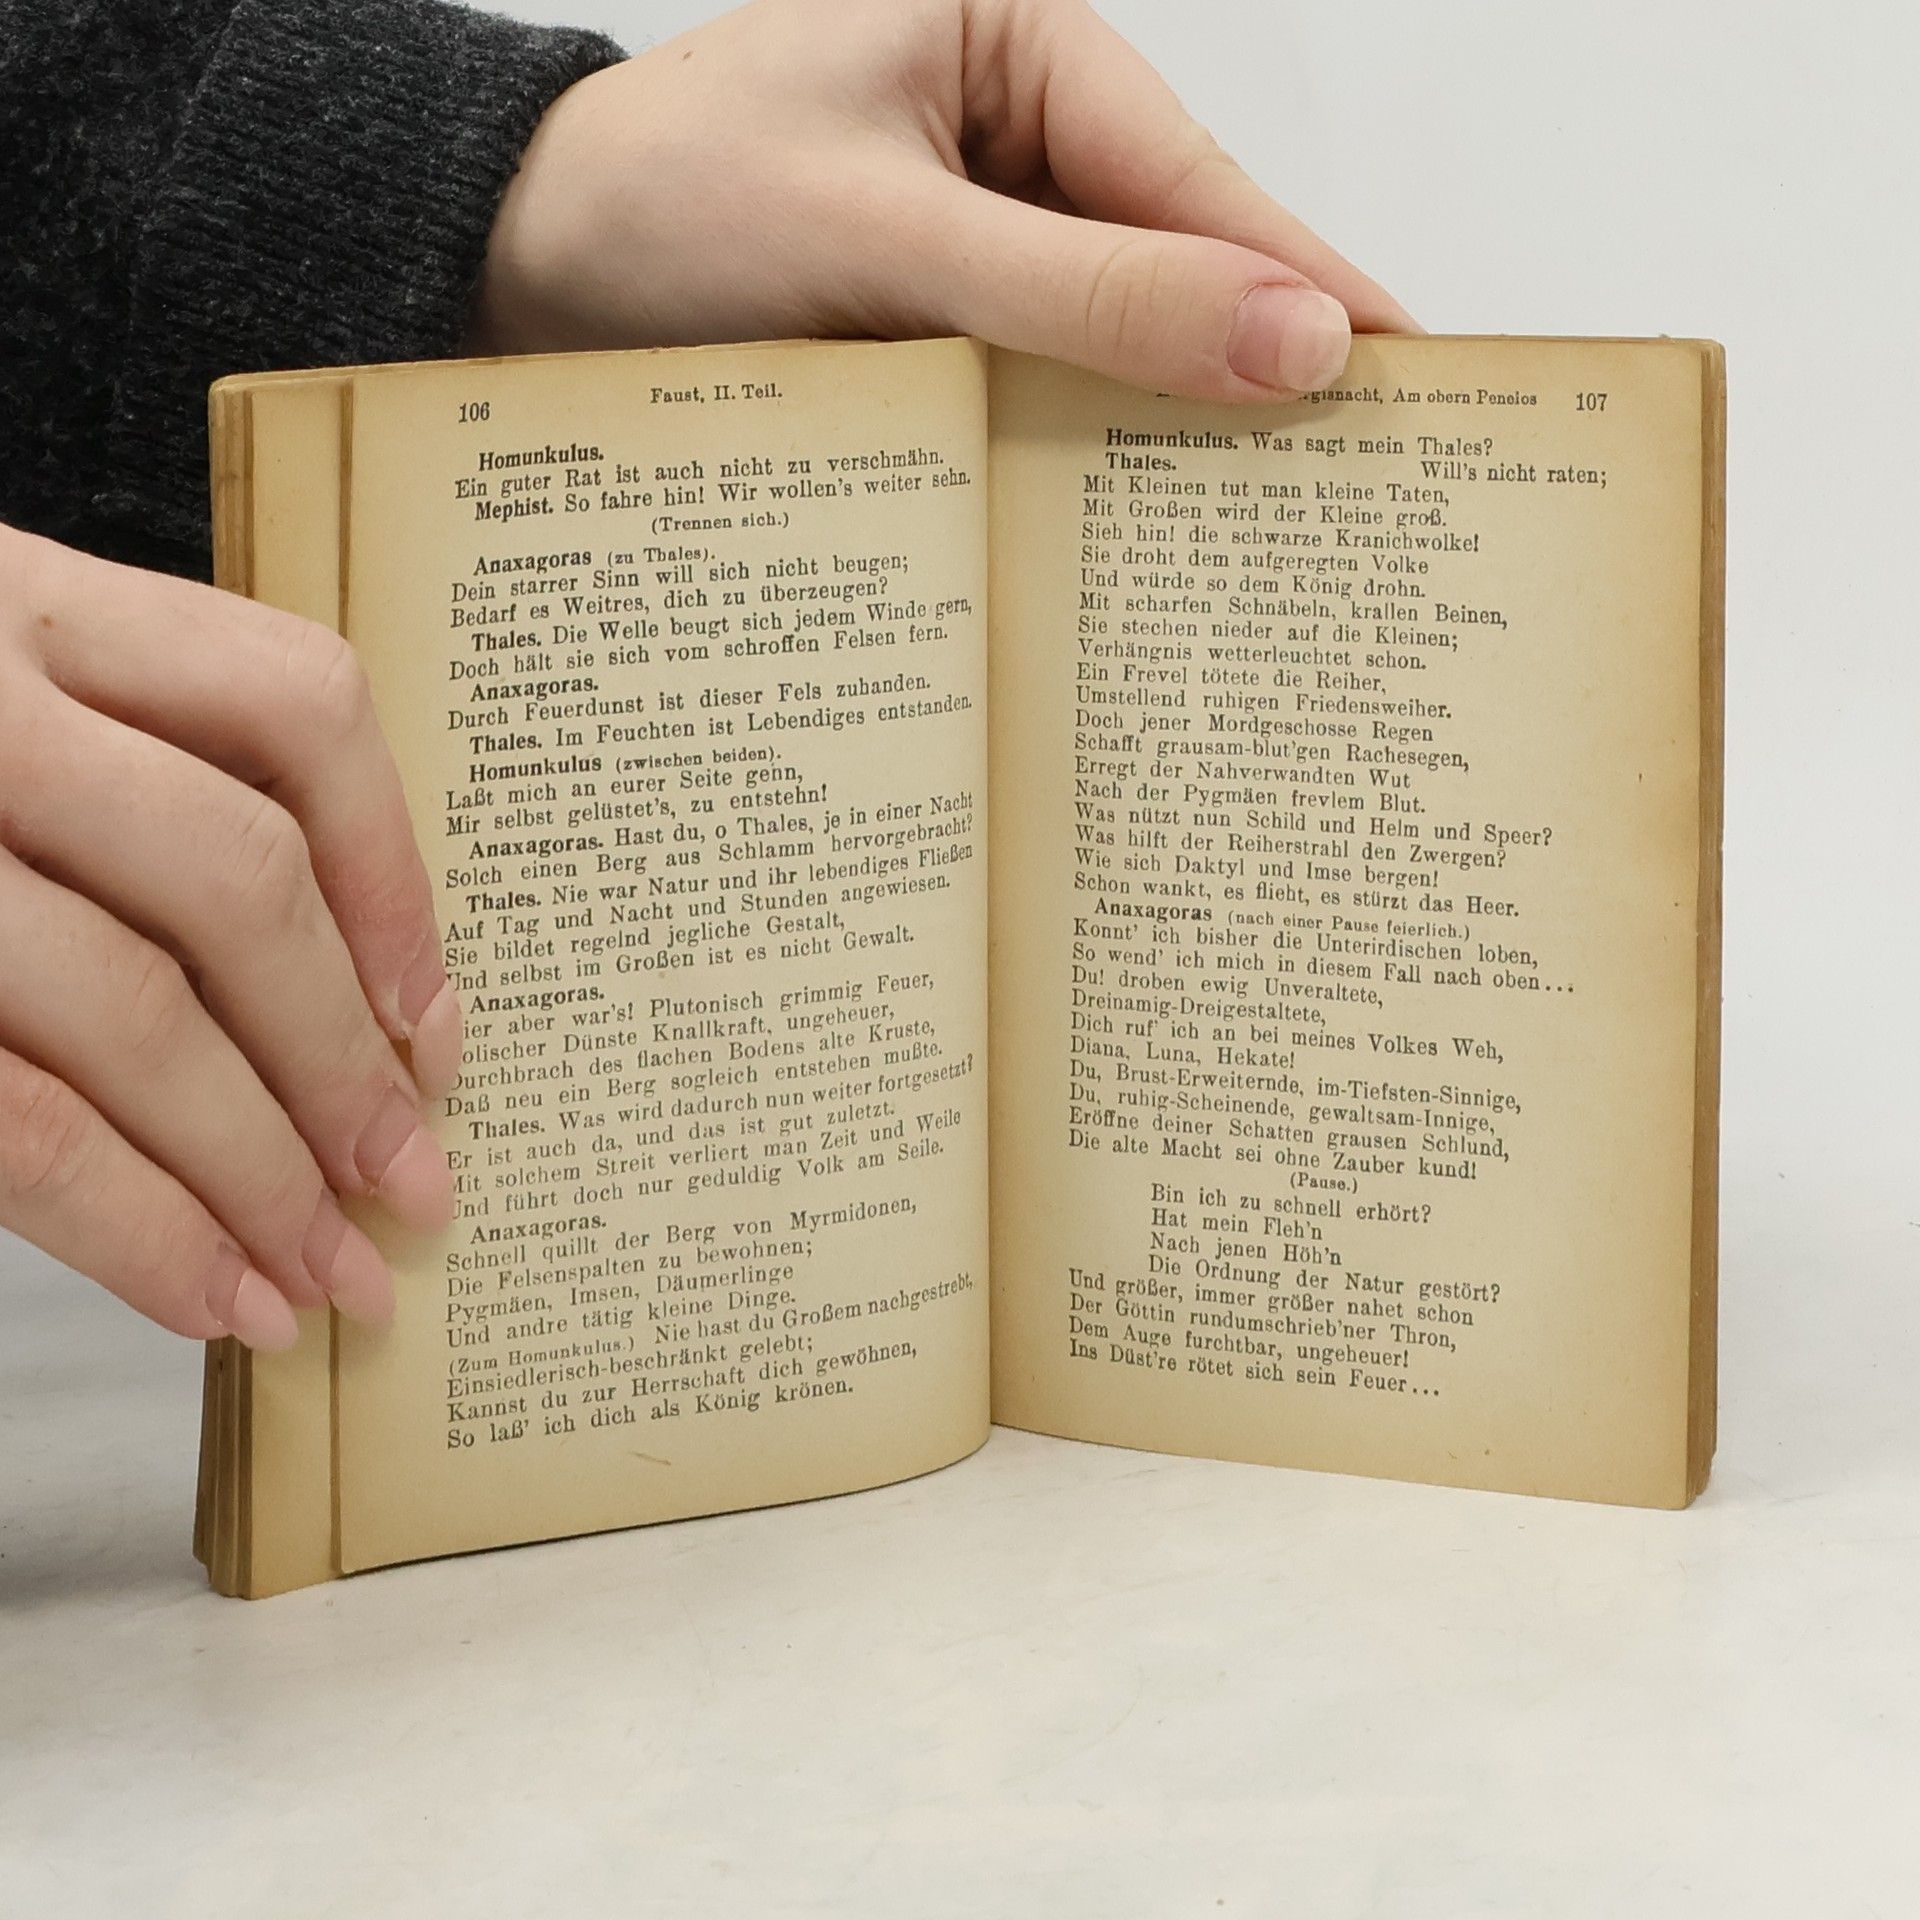 106
Faust, II. Teil.
Homunkulus.
Ein guter Rat ist auch nicht zu verschmähn.
Mephist. So fahre hin! Wir wollen's weiter sehn.
(Trennen sich.)
Anaxagoras (zu Thales).
Dein starrer Sinn will sich nicht beugen;
Bedarf es Weitres, dich zu überzeugen?
Thales. Die Welle beugt sich jedem Winde gern,
Doch hält sie sich vom schroffen Felsen fern.
Anaxagoras.
Durch Feuerdunst ist dieser Fels zuhanden.
Thales. Im Feuchten ist Lebendiges entstanden.
Homunkulus (zwischen beiden).
Laßt mich an eurer Seite gehn,
Mir selbst gelüstet's, zu entstehn!
Anaxagoras. Hast du, o Thales, je in einer Nacht
Solch einen Berg aus Schlamm hervorgebracht?
Thales. Nie war Natur und ihr lebendiges Fließen
Auf Tag und Nacht und Stunden angewiesen.
Sie bildet regelnd jegliche Gestalt,
Und selbst im Großen ist es nicht Gewalt.
Anaxagoras.
ier aber war's! Plutonisch grimmig Feuer,
olischer Dünste Knallkraft, ungeheuer,
Durchbrach des flachen Bodens alte Kruste,
Daß neu ein Berg sogleich entstehen mußte.
Thales. Was wird dadurch nun weiter fortgesetzt?
Er ist auch da, und das ist gut zuletzt.
Mit solchem Streit verliert man Zeit und Weile
Und führt doch nur geduldig Volk am Seile.
Anaxagoras.
Schnell quillt der Berg von Myrmidonen,
Die Felsenspalten zu bewohnen;
Pygmäen, Imsen, Däumerlinge
Und andre tätig kleine Dinge.
(Zum Homunkulus.) Nie hast du Großem nachgestrebt,
Einsiedlerisch-beschränkt gelebt;
Kannst du zur Herrschaft dich gewöhnen,
So laß' ich dich als König krönen.
rgisnacht, Am obern Peneios 107
Homunkulus. Was sagt mein Thales?
Thales. Will's nicht raten;
Mit Kleinen tut man kleine Taten,
Mit Großen wird der Kleine groß.
Sieh hin! die schwarze Kranichwolke!
Sie droht dem aufgeregten Volke
Und würde so dem König drohn.
Mit scharfen Schnäbeln, krallen Beinen,
Sie stechen nieder auf die Kleinen;
Verhängnis wetterleuchtet schon.
Ein Frevel tötete die Reiher,
Umstellend ruhigen Friedensweiher.
Doch jener Mordgeschosse Regen
Schafft grausam-blut'gen Rachesegen,
Erregt der Nahverwandten Wut
Nach der Pygmäen frevlem Blut.
Was nützt nun Schild und Helm und Speer?
Was hilft der Reiherstrahl den Zwergen?
Wie sich Daktyl und Imse bergen!
Schon wankt, es flieht, es stürzt das Heer.
Anaxagoras (nach einer Pause feierlich.)
Konnt' ich bisher die Unterirdischen loben,
So wend' ich mich in diesem Fall nach oben...
Du! droben ewig Unveraltete,
Dreinamig-Dreigestaltete,
Dich ruf' ich an bei meines Volkes Weh,
Diana, Luna, Hekate!
Du, Brust-Erweiternde, im-Tiefsten-Sinnige,
Du, ruhig-Scheinende, gewaltsam-Innige,
Eröffne deiner Schatten grausen Schlund,
Die alte Macht sei ohne Zauber kund!
(Pause.)
Bin ich zu schnell erhört?
Hat mein Fleh'n
Nach jenen Höh'n
Die Ordnung der Natur gestört?
Und größer, immer größer nahet schon
Der Göttin rundumschrieb'ner Thron,
Dem Auge furchtbar, ungeheuer!
Ins Düst're rötet sich sein Feuer...